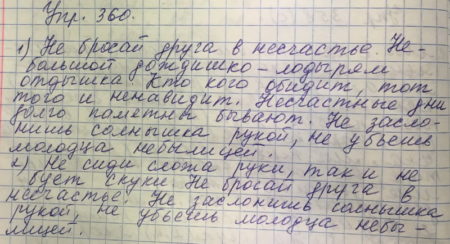 Упр. 360.
1) Не бросай друга в несчастье. Не-
большой дождишко – лодырям
отдышка. Кто кого обидит, тот
того и ненавидит. Несчастные дни
долго памятны бывают. Не засло-
нишь солнышка рукой, не убьёшь
молодца небылицей.
2) Не сиди сложа руки, так и не
будет скуки. Не бросай друга в
несчастье. Не заслонишь солнышка
рукой, не убьёшь молодца небы-
лицей.